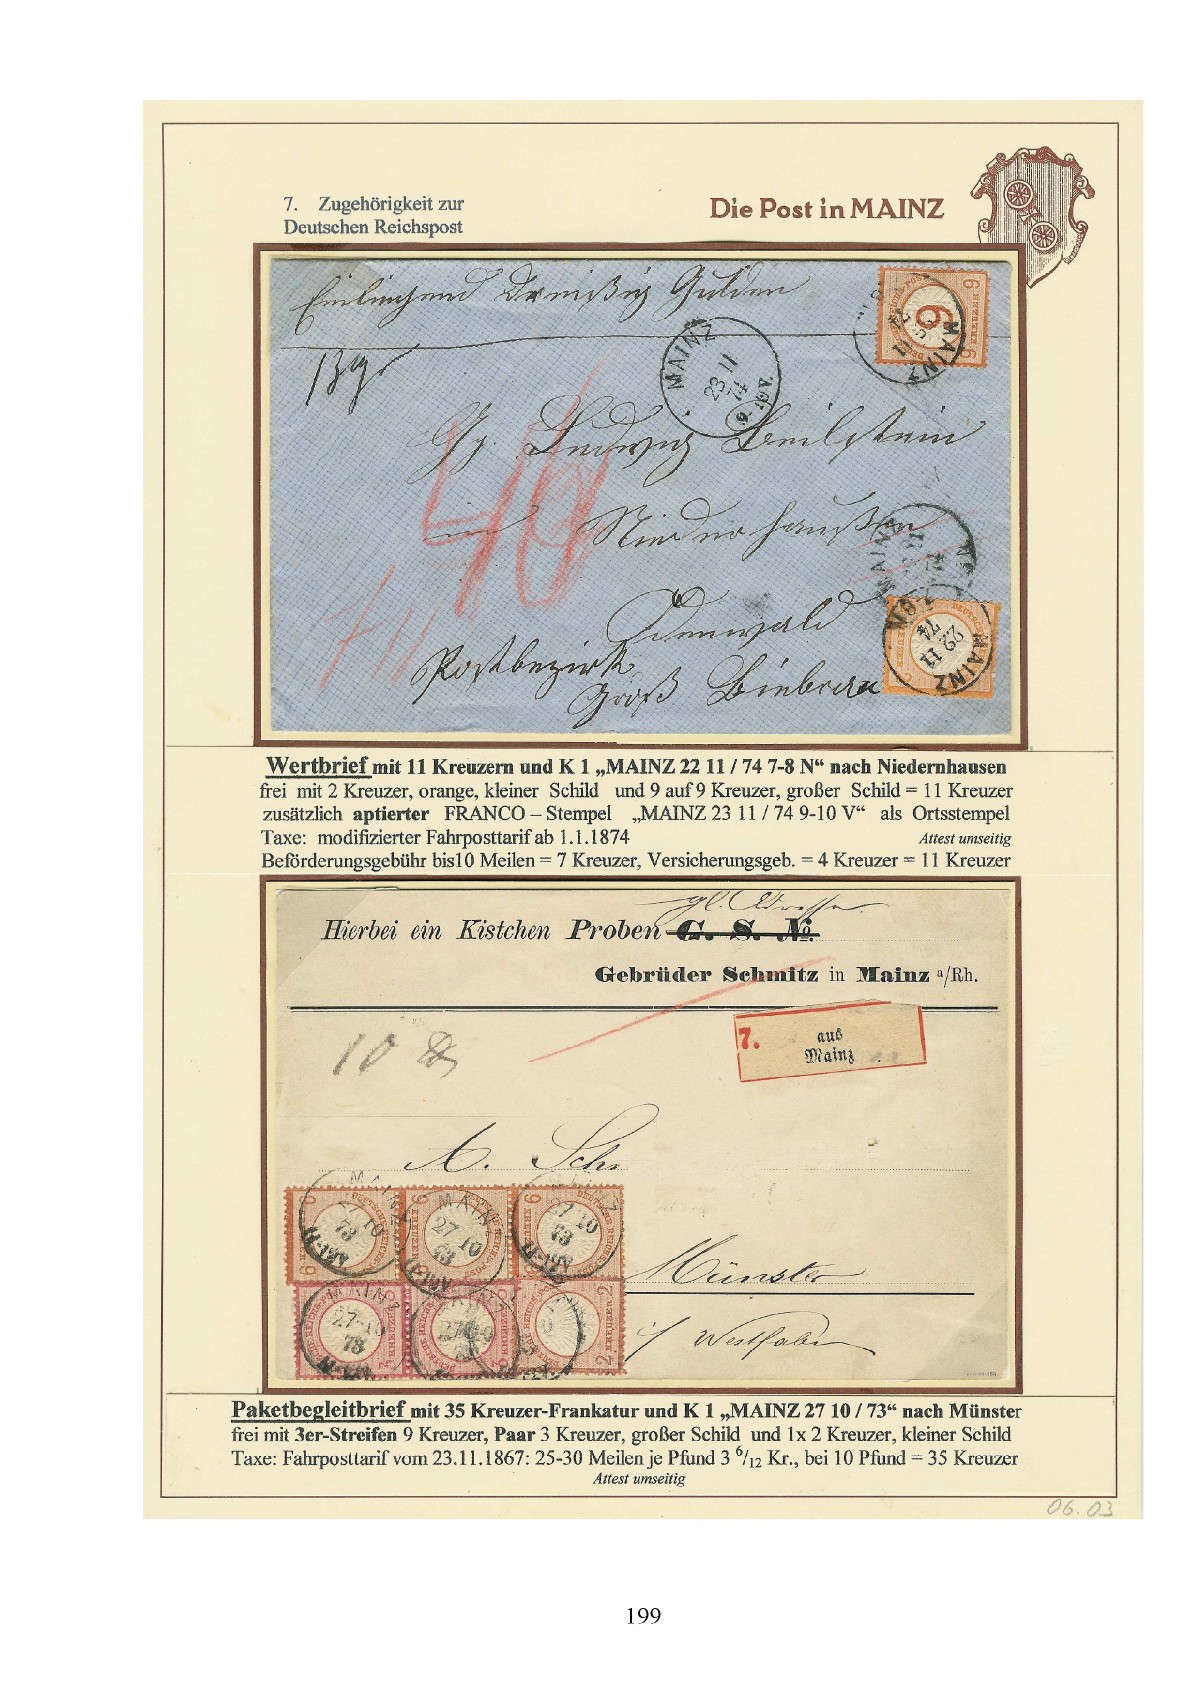 7. Zugehörigkeit zur
Deutschen Reichspost
Die Post in MAINZ
Einliegend Dreißig Gulden
MAINZ
23 11
74
9-10V.
9
9 KREUZER 9
MAINZ
Ludwig Beilstein
40
in Niederhaußen
Odenwald
Postbezirk
Groß Bieberau
MAINZ
22 11
74
Wertbrief mit 11 Kreuzern und K 1 „MAINZ 22 11 / 74 7-8 N“ nach Niedernhausen
frei mit 2 Kreuzer, orange, kleiner Schild und 9 auf 9 Kreuzer, großer Schild = 11 Kreuzer
zusätzlich aptierter FRANCO – Stempel „MAINZ 23 11 / 74 9-10 V“ als Ortsstempel
Taxe: modifizierter Fahrposttarif ab 1.1.1874 Attest umseitig
Beförderungsgebühr bis10 Meilen = 7 Kreuzer, Versicherungsgeb. = 4 Kreuzer = 11 Kreuzer
gl. Adresse
Hierbei ein Kistchen Proben G. S. No.
Gebrüder Schmitz in Mainz a/Rh.
7. aus
Mainz
10
A. Sch
MAINZ
27 10
73
MAINZ
27 10
73
27 10
73
Münster
MAINZ
27 10
73
2 KREUZER 2
i/ Westfalen
Paketbegleitbrief mit 35 Kreuzer-Frankatur und K 1 „MAINZ 27 10 / 73“ nach Münster
frei mit 3er-Streifen 9 Kreuzer, Paar 3 Kreuzer, großer Schild und 1x 2 Kreuzer, kleiner Schild
Taxe: Fahrposttarif vom 23.11.1867: 25-30 Meilen je Pfund 3 6/12 Kr., bei 10 Pfund = 35 Kreuzer
Attest umseitig
06.03
199